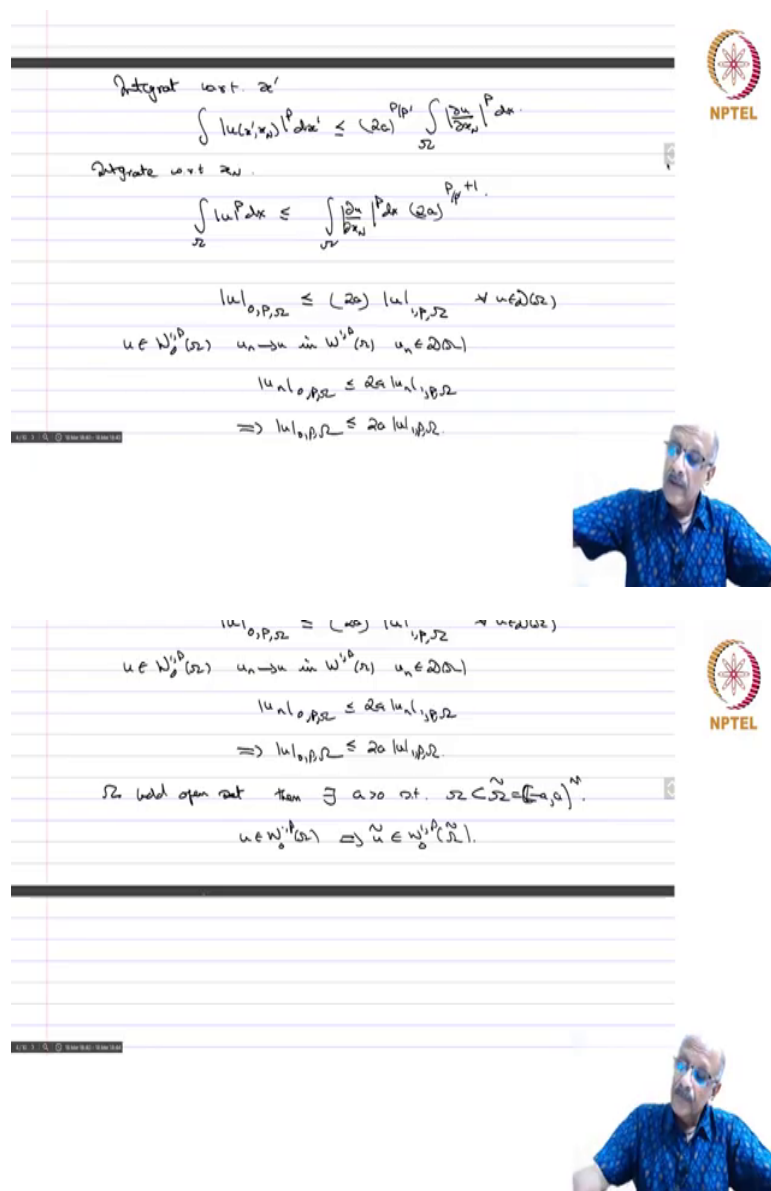 Integrat w.r.t. x'
∫ |u(x',x_N)|^p dx' ≤ (2a)^{p/p'} ∫_Ω |∂u/∂x_N|^p dx.
NPTEL
Intgrate w.r.t x_N.
∫_Ω |u|^p dx ≤ ∫_Ω |∂u/∂x_N|^p dx (2a)^{p/p'+1}.
|u|_{0,p,Ω} ≤ (2a) |u|_{1,p,Ω} ∀ u∈D(Ω)
u ∈ W_0^{1,p}(Ω) u_n→u in W^{1,p}(Ω) u_n ∈ D(Ω)
|u_n|_{0,p,Ω} ≤ 2a |u_n|_{1,p,Ω}
⇒ |u|_{0,p,Ω} ≤ 2a |u|_{1,p,Ω}.
|u|_{0,p,Ω} ≤ (2a) |u|_{1,p,Ω} ∀ u∈D(Ω)
u ∈ W_0^{1,p}(Ω) u_n→u in W^{1,p}(Ω) u_n ∈ D(Ω)
NPTEL
|u_n|_{0,p,Ω} ≤ 2a |u_n|_{1,p,Ω}
⇒ |u|_{0,p,Ω} ≤ 2a |u|_{1,p,Ω}.
Ω bdd open set then ∃ a>0 s.t. Ω ⊂ Ω̃ = (-a,a)^N.
u ∈ W_0^{1,p}(Ω) ⇒ ũ ∈ W_0^{1,p}(Ω̃).